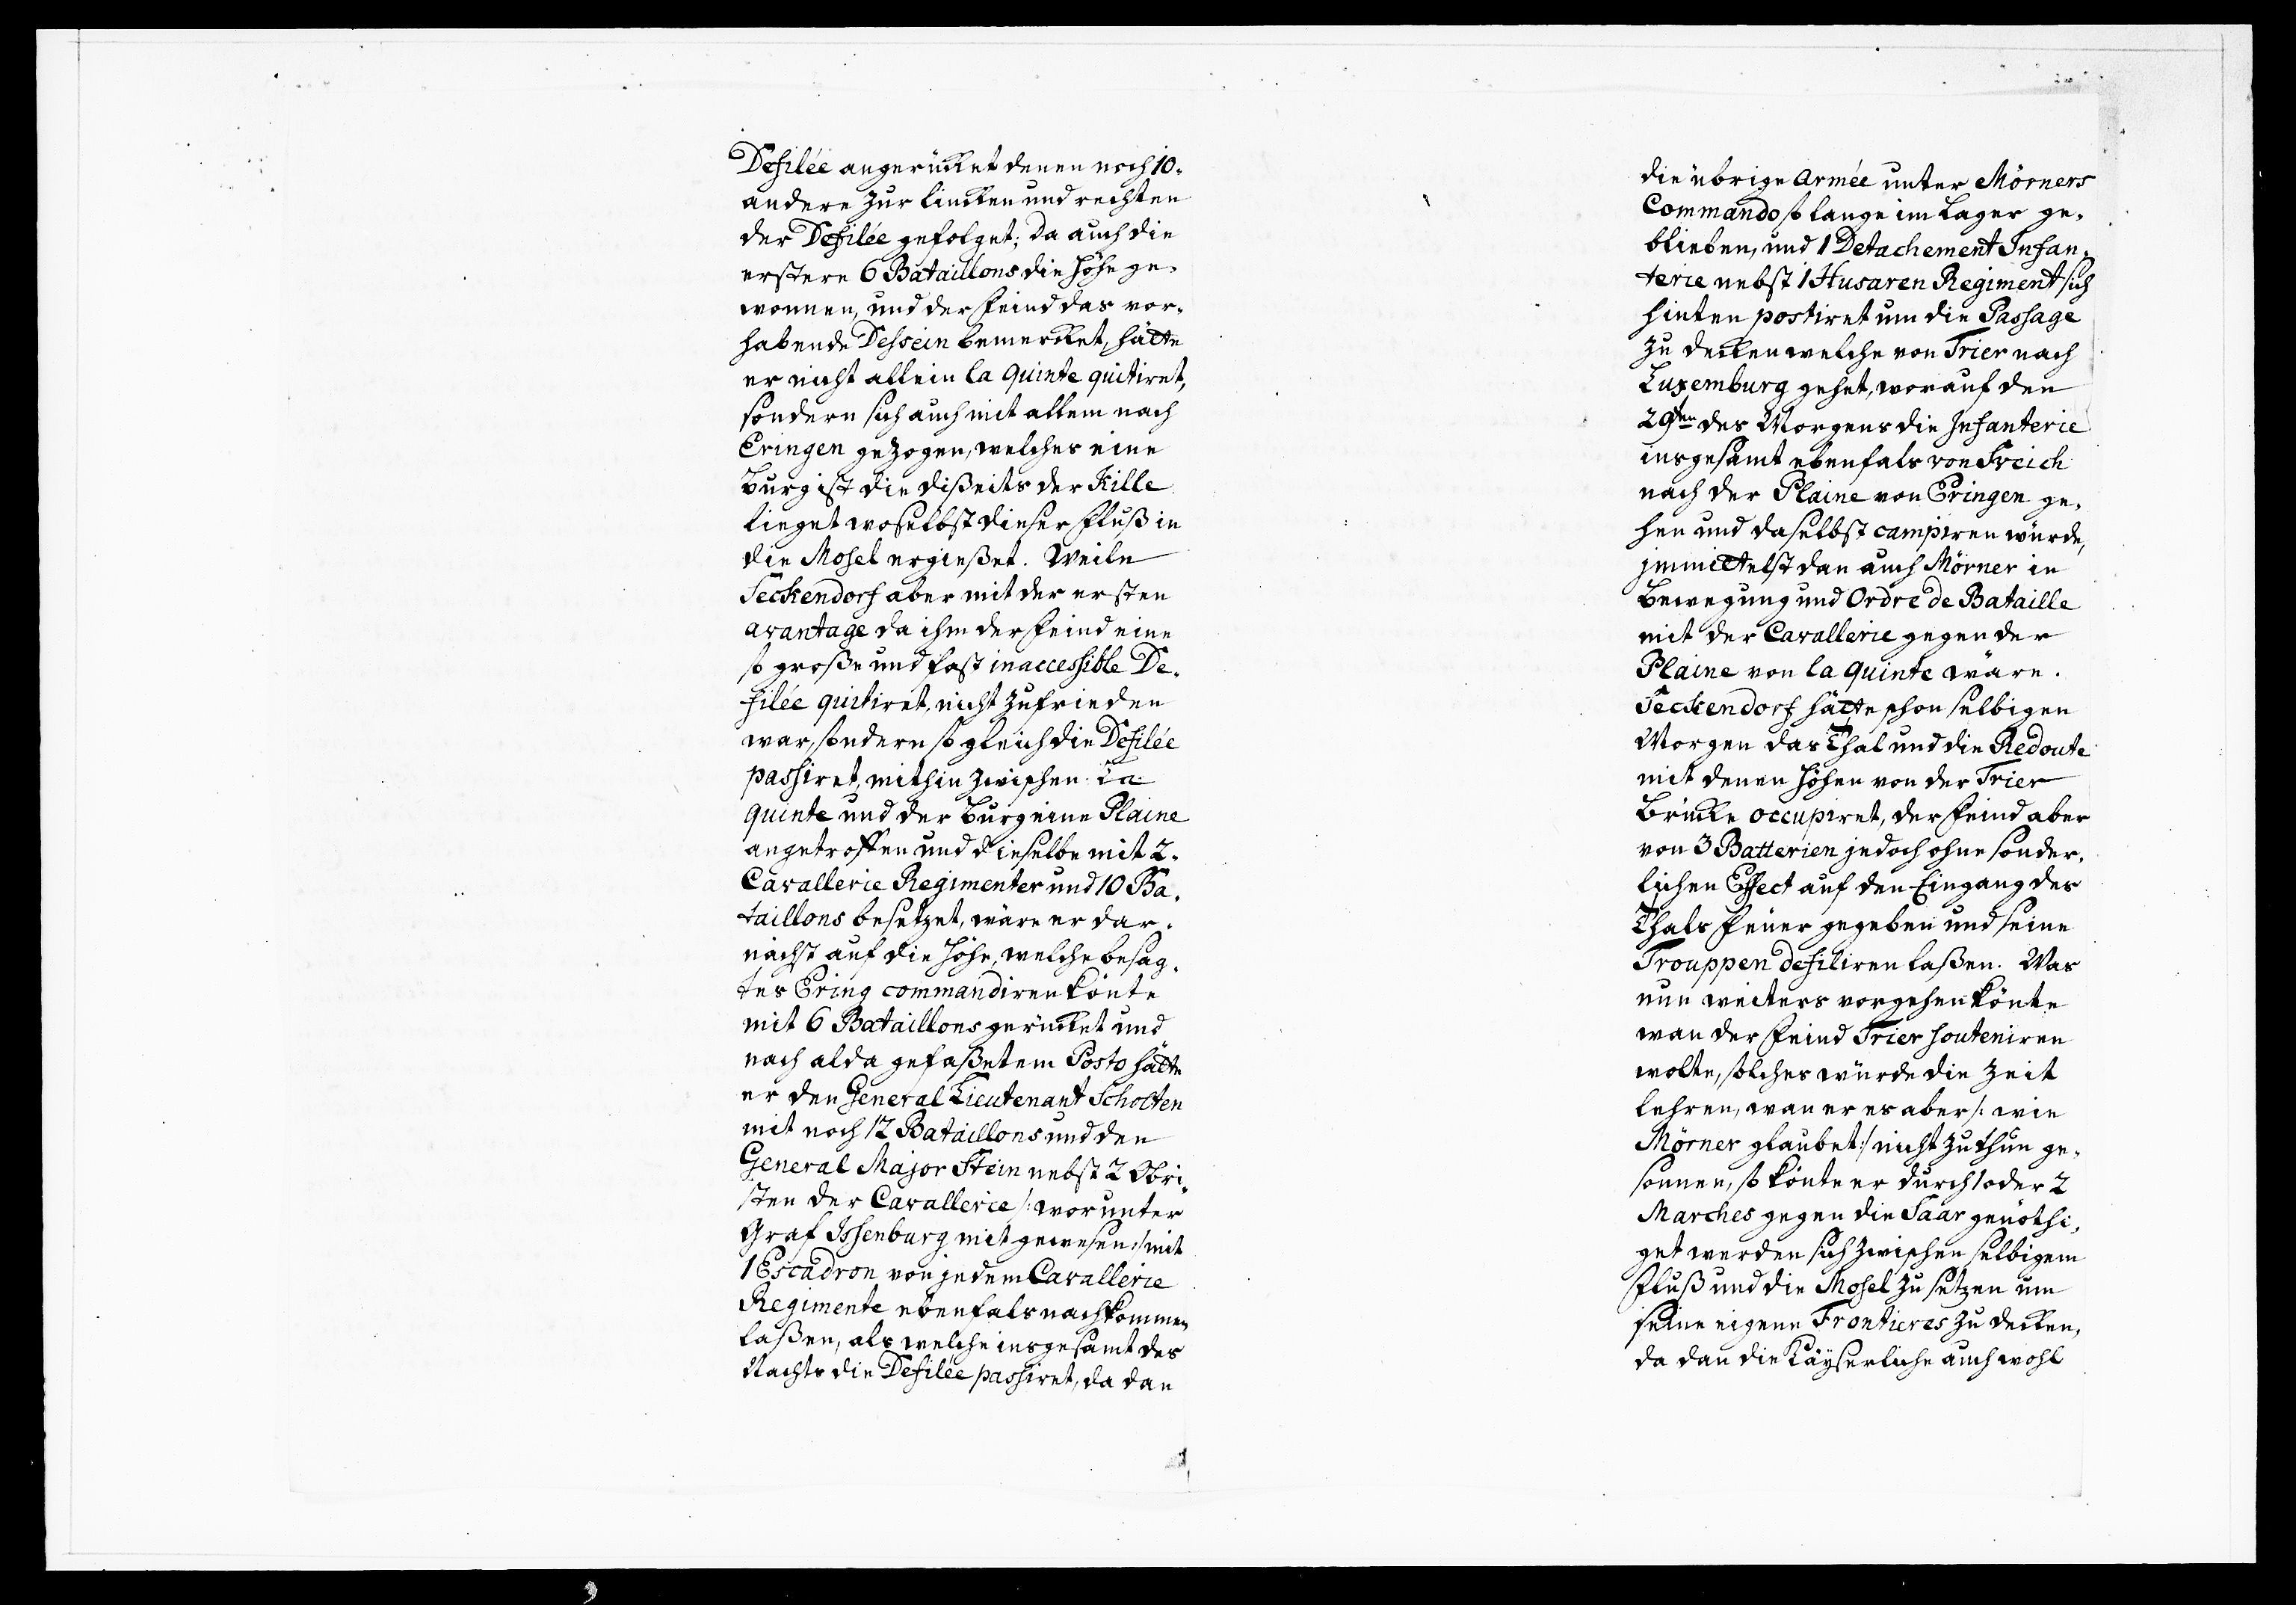 Defilée angerücket denen noch 10.
andere zur lincken und rechten
der Defilée gefolget; da auch die
erstere 6 Bataillons die Höhe ge-
wonnen, und der Feind das vor-
habende Dessein bemercket, hätte
er nicht allein la Quinte quitiret,
sondern sich auch mit allem nach
Eringen gezogen, welches eine
Burg ist die dißeits der Kille
lieget woselbst dieser Fluß in
die Mosel ergießet. Weile
Seckendorf aber mit der ersten
avantage da ihm der Feind eine
so große und fast inaccessible De-
filée quitiret, nicht zufrieden
war, sondern so gleich die Defilée
passiret, mithin zwischen La
Quinte und der Burg eine Plaine
angetroffen und dieselbe mit 2.
Cavallerie Regimenter und 10 Ba-
taillons besetzet, wäre er dar-
nächst auf die Höhe, welche besag-
tes Ering commandiren könte
mit 6 Bataillons gerücket und
nach alda gefaßetem Posto hätte
er den General Lieutenant Scholten
mit noch 12 Bataillons und den
General Major Stein nebst 2 Obri-
sten der Cavallerie /: worunter
Graf Issenburg mit gewesen :/ mit
1 Escadron von jedem Cavallerie
Regimente ebenfals nachkommen
laßen, als welche insgesamt des
Nachts die Defilée passiret, da dan
die übrige Armée unter Mörners
Commando so lange im Lager ge-
blieben, und 1 Detachement Infan-
terie nebst 1 Husaren Regiment sich
hinten postiret um die Passage
zu decken welche von Trier nach
Luxemburg gehet, worauf den
29ten des Morgens die Infanterie
insgesamt ebenfals von Freich
nach der Plaine von Eringen ge-
hen und daselbst campiren würde,
immittelst dan auch Mörner in
Bewegung und Ordre de Bataille
mit der Cavallerie gegen der
Plaine von la Quinte wäre.
Seckendorf hätte schon selbigen
Morgen das Thal und die Redoute
mit denen Höhen von der Trier
Brücke occupiret, der Feind aber
von 3 Batterien jedoch ohne sonder-
lichen Effect auf den Eingang des
Thals Feuer gegeben und seine
Trouppen defiliren laßen. Was
nun weiters vorgehen könte
wan der Feind Trier souteniren
wolte, solches würde die Zeit
lehren, wan er es aber /: wie
Mörner glaubet :/ nicht zu thun ge-
sonnen, so könte er durch 1 oder 2
Marches gegen die Saar genöthi-
get werden sich zwischen selbigem
Fluß und die Mosel zu setzen um
seine eigene Frontieres zu decken,
da dan die Käyserliche auch wohl